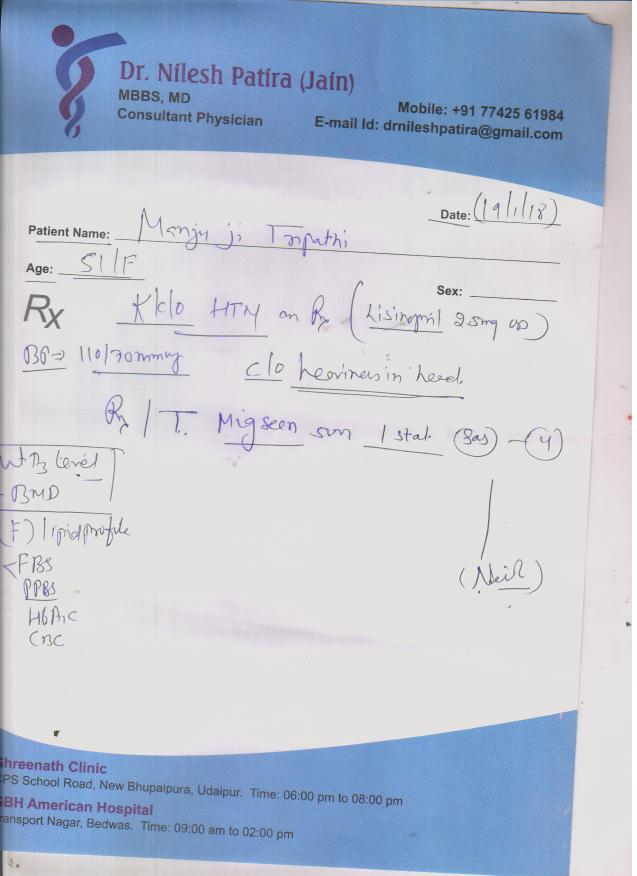 Dr. Nilesh Patira (Jain)
MBBS, MD
Consultant Physician
Mobile: +91 77425 61984
E-mail Id: drnileshpatira@gmail.com
Date: (19/1/18)
Patient Name: Manju ji Tripathi
Age: 51/F
Sex:
Rx K/c/o HTN on Rx (Lisinopril 2.5mg OD)
BP⇒ 110/70mmHg c/o heaviness in head
Rx / T. Mig 1 stat. SOS - 4
B12 level
- BMD
(F) lipid profile
FBS
PPBS
HbA1c
CBC
Shreenath Clinic
CPS School Road, New Bhupalpura, Udaipur. Time: 06:00 pm to 08:00 pm
GBH American Hospital
Transport Nagar, Bedwas. Time: 09:00 am to 02:00 pm